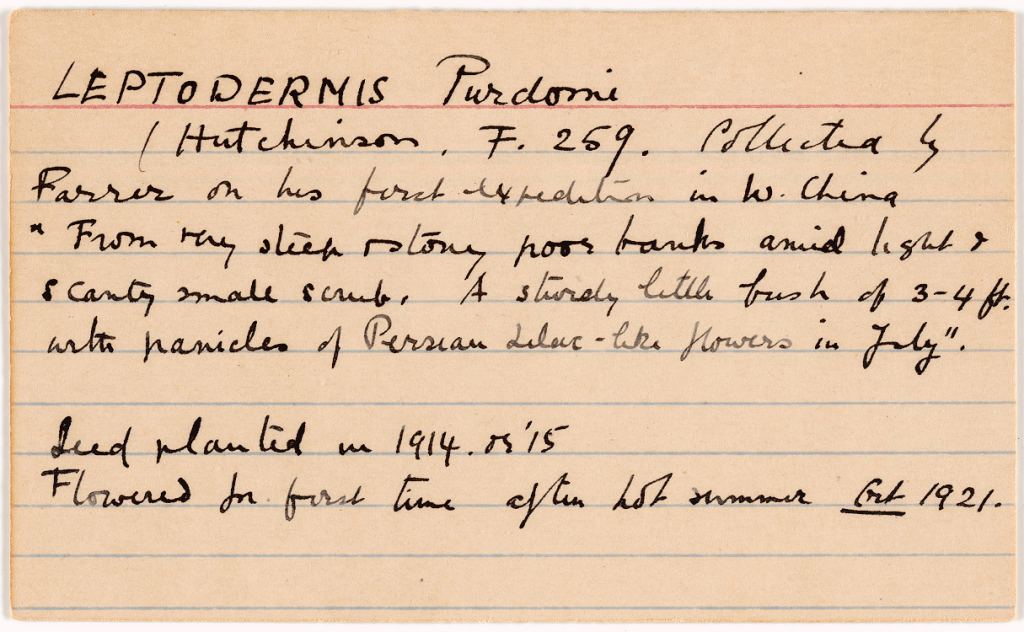 LEPTODERMIS Purdomii
(Hutchinson. F. 259. Collected by
Farrer on his first expedition in W. China
"From very steep & stony poor banks amid light &
scanty small scrub. A sturdy little bush of 3-4 ft.
with panicles of Persian Lilac-like flowers in July".
Seed planted in 1914. or '15
Flowered for first time after hot summer Oct 1921.